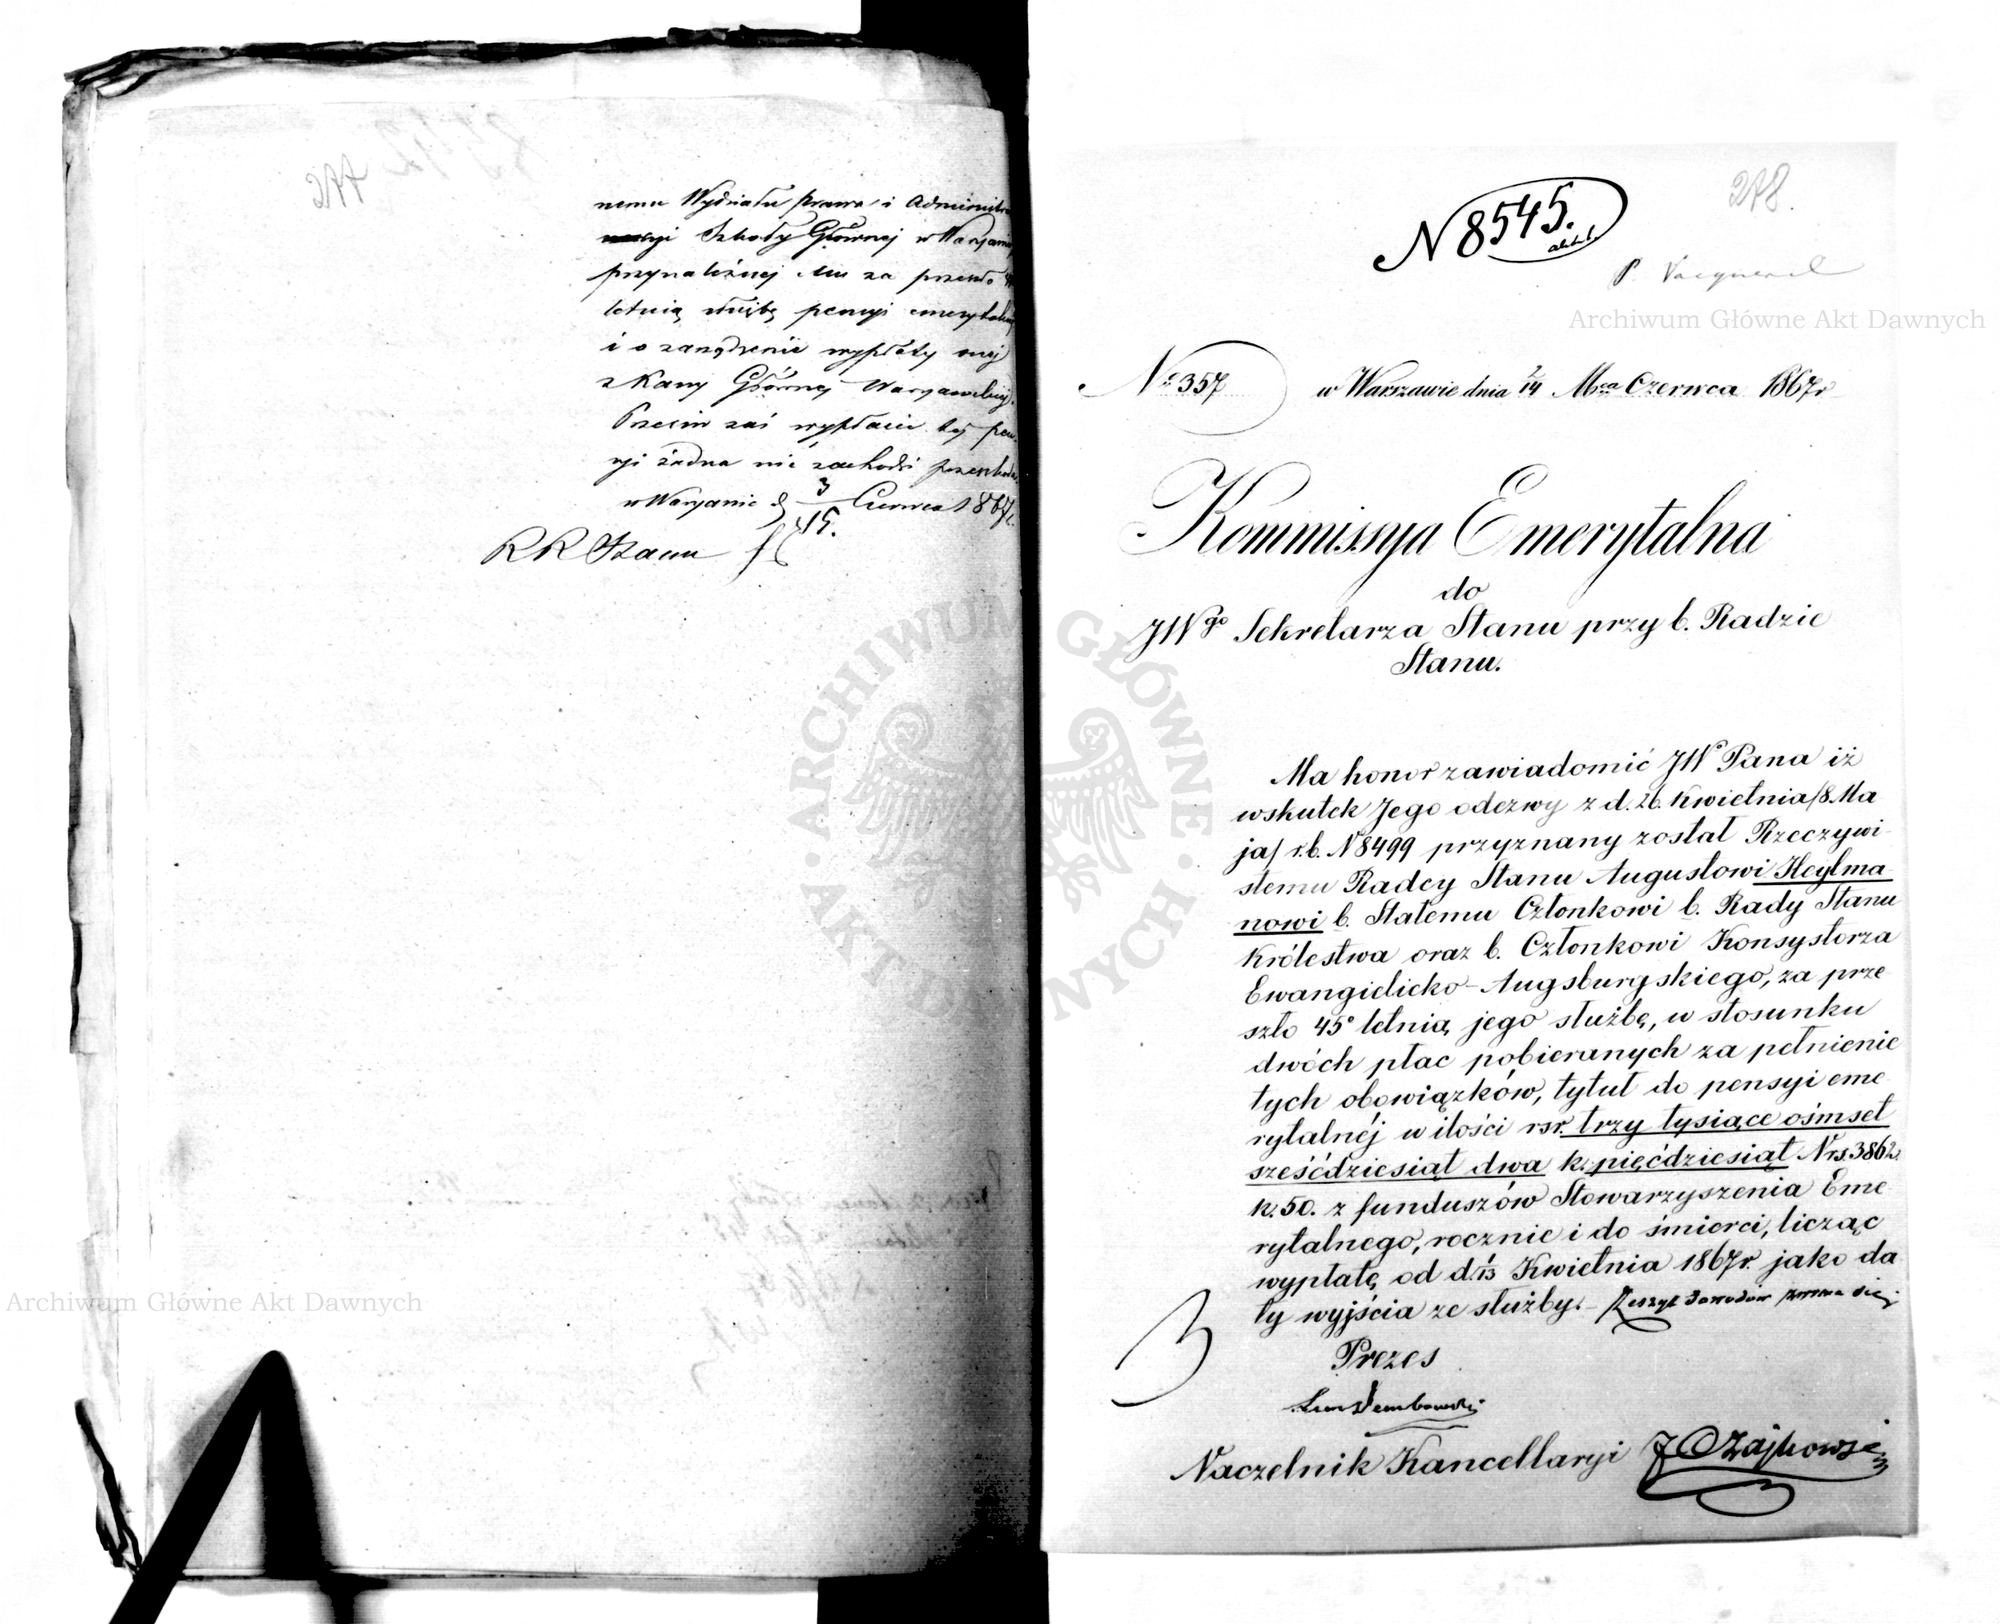 nemu Wydziału prawa i Administra
cyi Szkoły Głównej w Warszawie
przynależnej Mu za przeszło
letnią służbę pensyi emerytalnej
i o zarządzenie wypłaty onej
z Kassy Głównej Warszawskiej.
Przeciw zaś wypłacie tej pen-
syi żadna nie zachodzi przeszkoda.
w Warszawie d. 3/15. Czerwca 1867 r.
R R Stanu
N 8545.
278.
Archiwum Główne Akt Dawnych
No 357 w Warszawie dnia 2/14 Mca Czerwca 1867 r
Kommissya Emerytalna
do
JWgo Sekretarza Stanu przy b. Radzie
Stanu.
Ma honor zawiadomić JWo Pana iż
wskutek Jego odezwy z d. 26 Kwietnia/8 Ma
ja/ r.b. N 8499 przyznany został Rzeczywi-
stemu Radcy Stanu Augustowi Heylma
nowi b. Stałemu Członkowi b. Rady Stanu
Królestwa oraz b. Członkowi Konsystorza
Ewangielicko-Augsburgskiego, za prze-
szło 45o letnią jego służbę, w stosunku
dwóch płac pobieranych za pełnienie
tych obowiązków, tytuł do pensyi eme-
rytalnéj w ilości rsr. trzy tysiące ośmset
sześćdziesiąt dwa k. pięćdziesiąt N rs. 3862
k. 50. z funduszów Stowarzyszenia Eme-
rytalnego, rocznie i do śmierci, licząc
wypłatę od d. 1/13 Kwietnia 1867 r. jako da
ty wyjścia ze służby. - Zeszyt dowodów zwraca się.
Prezes
Leon Dembowski
Naczelnik Kancellaryi J Czajkowski
Archiwum Główne Akt Dawnych
ARCHIWUM GŁÓWNE AKT DAWNYCH